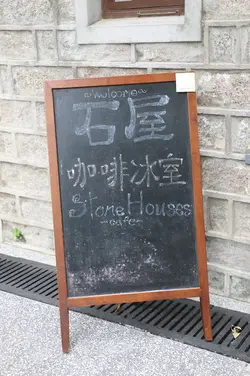 ~Welcome~
石屋
咖啡冰室
Stone Houses
~cafe~